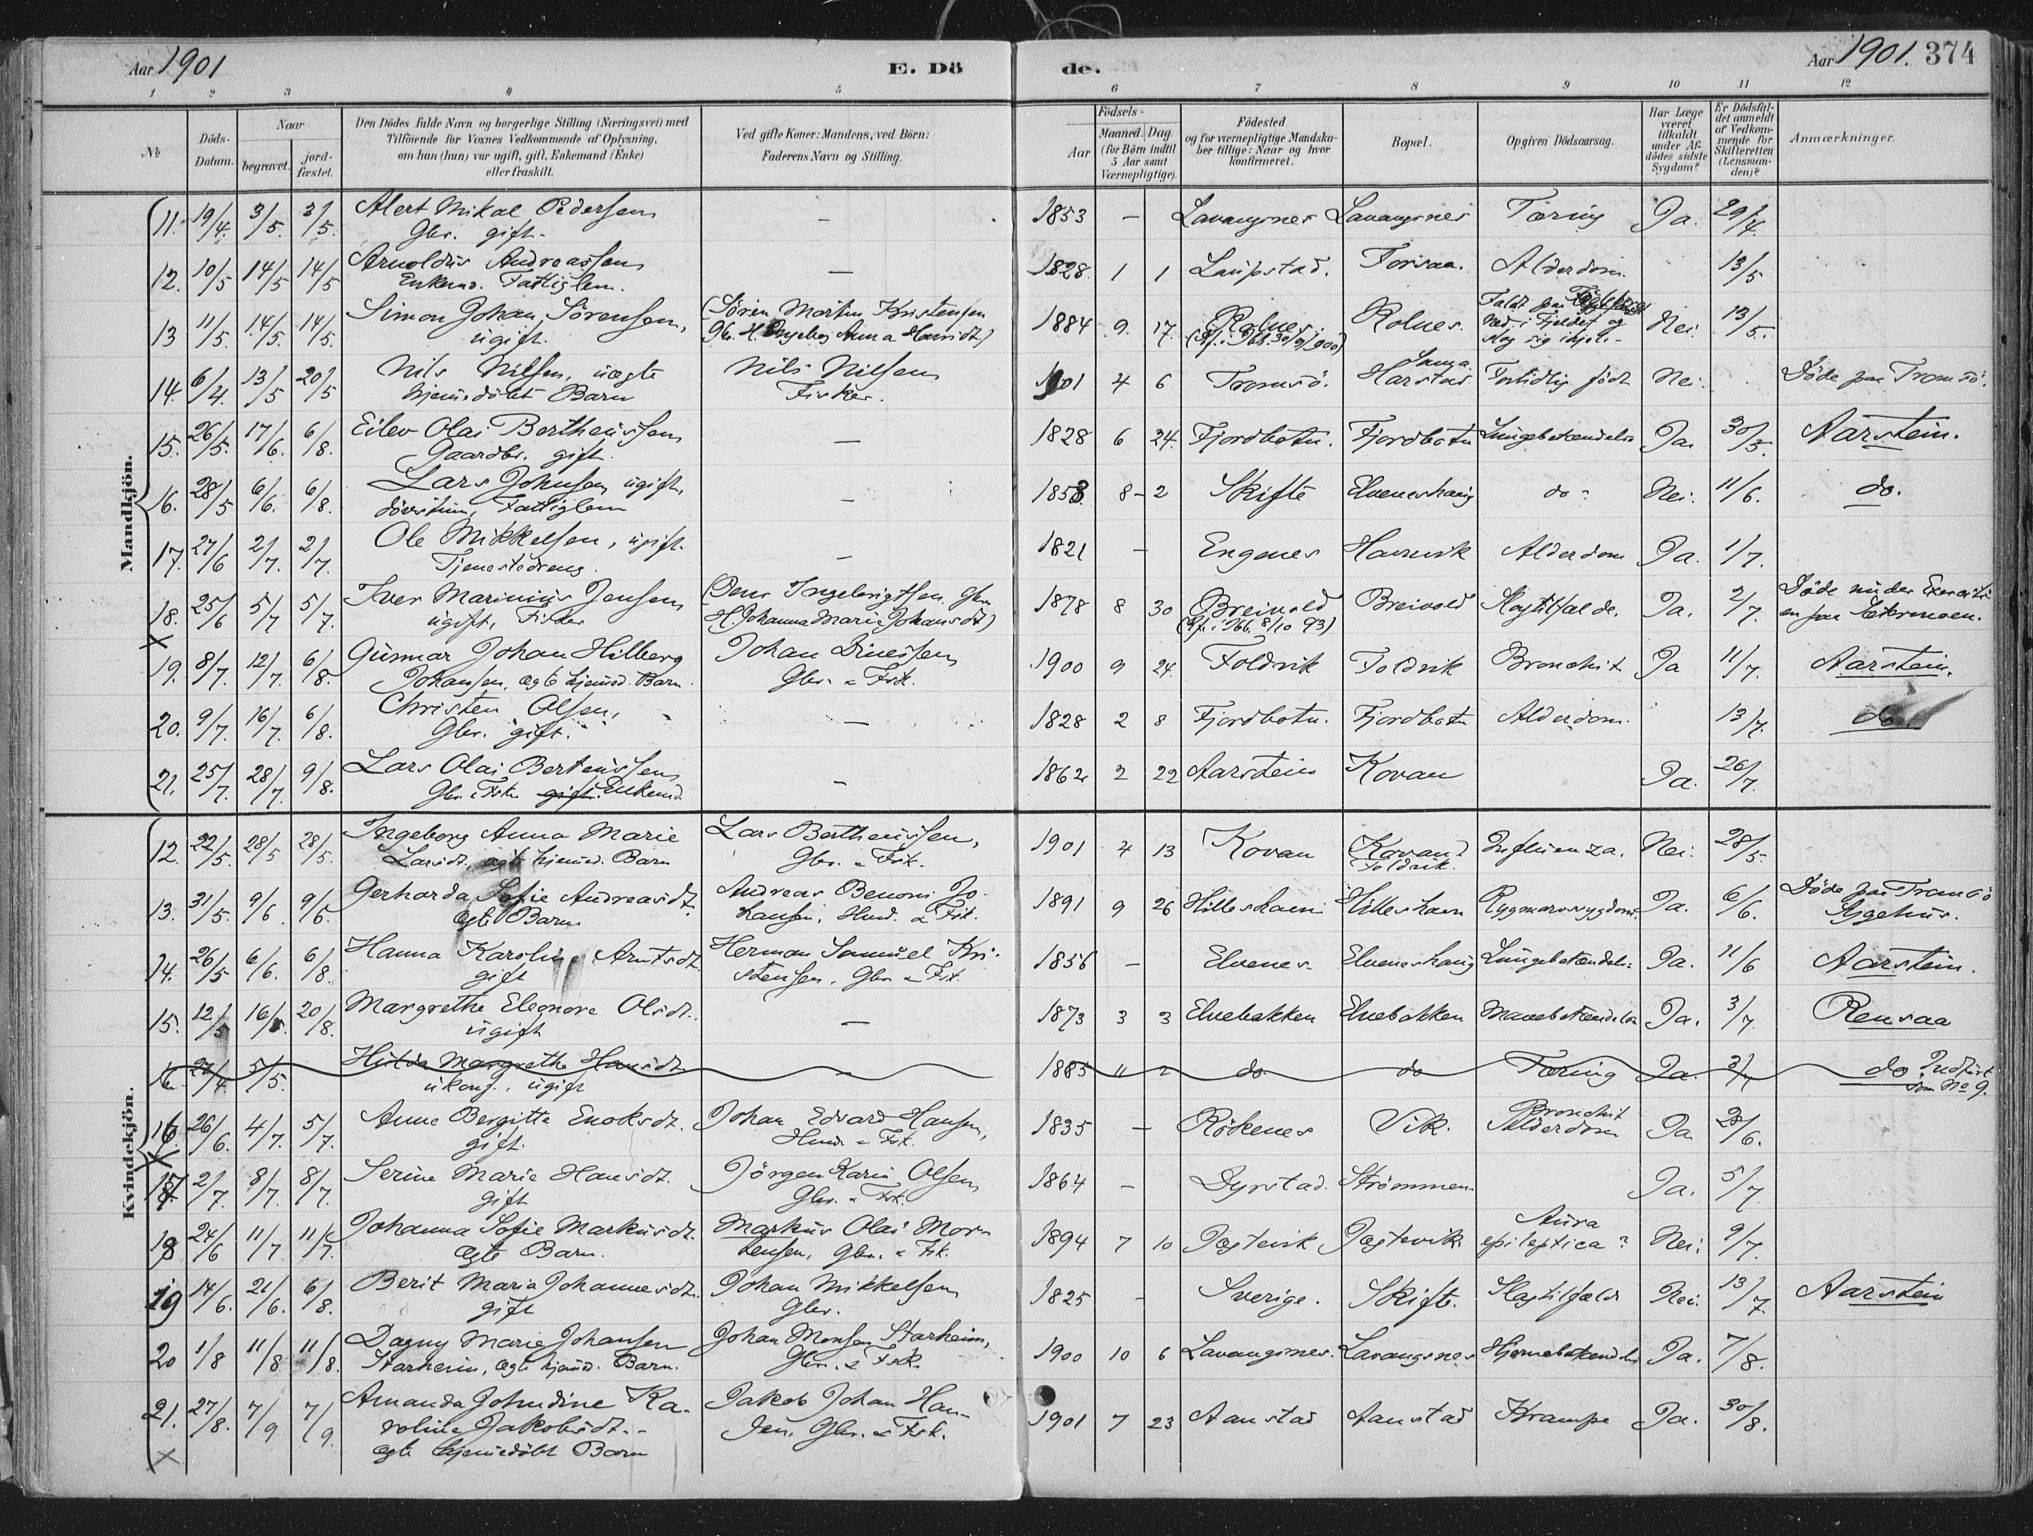 Aar 1901 E. Dö de. Aar 1901. 374
1 2 3 4 5 6 7 8 9 10 11 12
№
Döds-Datum.
Naar
begravet.
jord-fæstet.
Den Dödes fulde Navn og borgerlige Stilling (Næringsvei) med
Tilföiende for Voxnes Vedkommende af Oplysning,
om han (hun) var ugift, gift, Enkemand (Enke)
eller fraskilt.
Ved gifte Koner: Mandens, ved Börn:
Faderens Navn og Stilling.
Födsels-
Aar
Maaned. Dag.
(for Börn indtil
5 Aar samt
Værnepligtige).
Födested
og for værnepligtige Mandska-
ber tillige: Naar og hvor
konfirmeret.
Bopæl.
Opgiven Dödsaarsag.
Har Læge
været
tilkaldt
under Af-
dödes sidste
Sygdom?
Er Dödsfal-
det anmeldt
af Vedkom-
mende for
Skifteretten
(Lensman-
den)?
Anmærkninger.
Mandkjön.
11. 19/4. 3/5. 3/5. Alert Mikal Pedersen — 1853 — Lavangsnes Lavangsnes Tæring Ja. 29/4.
Gbr. gift.
12. 10/5 14/5 14/5 Arnoldus Andreassen — 1828. 1 1 Laupstad. Forsaa. Alderdom. 13/5
Enkemd. Fattiglem.
13 11/5. 14/5. 14/5. Simon Johan Sörensen, (Sörin Martin Kristensen 1884 9. 17. Rolnes. Rolnes. Faldt paa
ugift. Gb. H. Ingeborg Anna Hansdt.) (Kf. i Ibb. 30/9/900) ned i Fjeldet og Nei. 13/5.
slog sig ihjel.
14. 6/4. 13/5 20/5 Nils Nilsen, uægte Nils Nilsen 1901 4 6 Tromsö. Harstad Fortidlig födt Nei. Döde paa Tromsö.
hjemedöbt Barn Fisker.
15. 26/5. 17/6. 6/8. Eilev Olai Bertheussen — 1828 6 24. Fjordbotn. Fjordbotn Lungebetændelse Ja. 30/5. Aarstein.
Gaardbr. gift.
16. 28/5 6/6. 6/8. Lars Johnsen ugift, — 1853. 8 2 Skifte Elveneshaug do Nei. 11/6. do.
dövstum, Fattiglem
17. 27/6 2/7. 2/7. Ole Mikkelsen, ugift. — 1821 — Engenes Havnvik Alderdom Ja. 1/7.
Tjenestedreng.
18. 25/6 5/7 5/7. Iver Marinius Jensen (Jens Ingebrigtsen Gbr. 1878 8 30 Breivold Breivold Slagtilfælde. Ja. 2/7. Döde under Exerciti-
ugift, Fisker H. Johanna Marie Johansdt.) (Kf. i Ibb. 8/10 93) en paa Sætermoen.
19. 8/7. 12/7. 6/8. Gunnar Johan Hilberg Johan Dinessen 1900 9 24. Foldvik Foldvik Bronchit Ja 11/7. Aarstein.
Johansen, ægte hjemed. Barn. Gbr. & Fsk.
20. 9/7. 16/7. 6/8. Christen Olsen, — 1828 2 8 Fjordbotn. Fjordbotn Alderdom. 13/7. do.
Gbr. gift.
21. 25/7. 28/7. 9/8. Lars Olai Berteussen — 1862 2 22 Aarstein Kovan Ja. 26/7.
Gbr. & Fsk. gift. Enkemd.
Kvindekjön.
12. 22/5. 28/5 28/5. Ingeborg Anna Marie Lars Bertheussen, 1901 4 13 Kovan Kovan? Influenza. Nei. 28/5.
Larsdt. ægte hjemed. Barn Gbr. & Fsk. Foldvik.
13. 31/5. 9/6 9/6. Gerharda Sofie Andreasdt. Andreas Benoni Jo- 1891 9 26 Hilleshavn Hilleshavn Rygmarvssygdom. Ja. 6/6. Döde paa Tromsö
ægte Barn hansen, Hmd. & Fsk. Sygehus.
14. 26/5 6/6. 6/8. Hanna Karoline Arntsdt. Herman Samuel Kri- 1856 — Elvenes. Elveneshaug Lungebetændelse. Ja. 11/6 Aarstein.
gift stensen, Gbr. & Fsk.
15. 12/5 16/5. 20/8. Margrethe Eleonore Olsdt. — 1873 3 3 Elvebakken Elvebakken Mavebetændelse Ja. 3/7. Rensaa
ugift
16 27/4 5/5. Hilda Margrethe Hansdt — 1885 11 2 do do Tæring Ja. 3/7 do Indfört
ukonf., ugift som No 9.
16. 26/6. 4/7. 5/7. Anne Bergitte Enoksdt. Johan Edvard Hansen, 1835 — Rökenes Vik. Bronchit Ja 28/6.
gift. Hmd. & Fsk. Alderdom
17. 2/7. 8/7. 8/7. Serine Marie Hansdt. Jörgen Karin Olsen 1864 — Dyrstad. Strömmen Ja. 5/7.
gift Gbr. & Fsk.
18 24/6 11/7 11/7. Johanna Sofie Markusdt. Markus Olai Mor- 1894 7 10 Jægtevik Jægtevik. Aura Nei. 9/7.
ægte Barn. tensen, Gbr. & Fsk. epileptica?
19 14/6. 21/6. 6/8. Berit Maria Johannesdt. Johan Mikkelsen 1825 — Sverige. Skifte. Slagtilfæld Nei. 13/7. Aarstein
gift Gbr.
20 1/8 11/8 11/8. Dagny Marie Johansen Johan Monsen Starheim, 1900 10 6 Lavangsnes. Lavangsnes Hjernebetændelse Ja. 7/8.
Starheim, ægte hjemed. Barn. Gbr. & Fsk.
21. 27/8. 7/9 7/9. Amanda Johndine Ka- Jakob Johan Han- 1901 7 23 Aanstad Aanstad Krampe Ja. 30/8.
roline Jakobsdt. sen, Gbr. & Fsk.
ægte hjemedöbt Barn